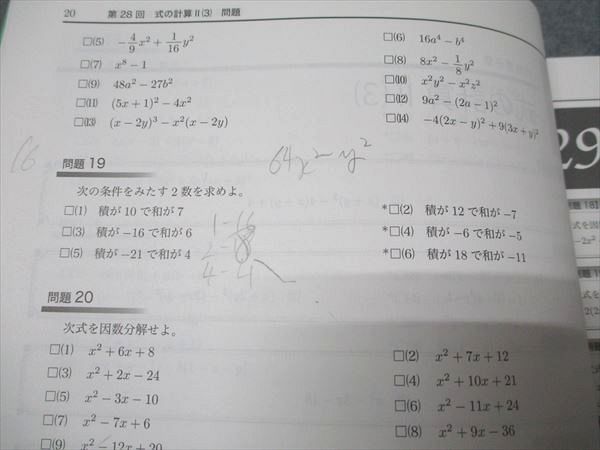 20 第28回 式の計算Ⅱ(3) 問題
□(5) -4/9x²+1/16y² □(6) 16a⁴-b⁴
□(7) x⁸-1 □(8) 8x²-1/8y²
□(9) 48a²-27b² □(10) x²y²-x²z²
□(11) (5x+1)²-4x² □(12) 9a²-(2a-1)²
□(13) (x-2y)³-x²(x-2y) □(14) -4(2x-y)²+9(3x+y)²
16 64x²-y²
問題19
次の条件をみたす2数を求めよ。
□(1) 積が10で和が7 *□(2) 積が12で和が-7
□(3) 積が-16で和が6 *□(4) 積が-6で和が-5
□(5) 積が-21で和が4 *□(6) 積が18で和が-11
1-16
2-8
4-4
問題20
次式を因数分解せよ。
□(1) x²+6x+8 □(2) x²+7x+12
□(3) x²+2x-24 □(4) x²+10x+21
□(5) x²-3x-10 □(6) x²-11x+24
□(7) x²-7x+6 □(8) x²+9x-36
□(9) x²-12x+20
29